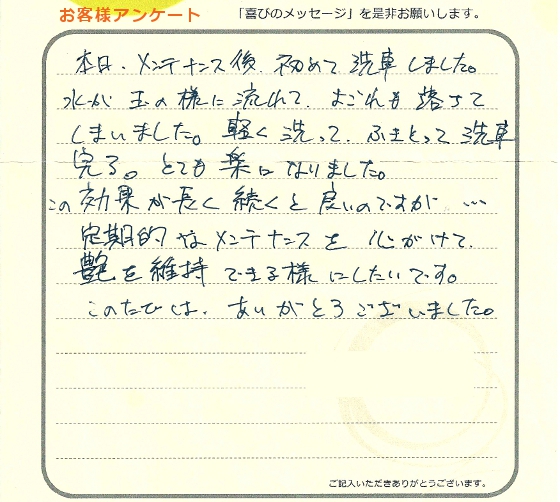 お客様アンケート 「喜びのメッセージ」を是非お願いします。
本日、メンテナンス後、初めて洗車しました。
水が玉の様に流れて、よごれも落ちて
しまいました。軽く洗って、ふきとって洗車
完了。とても楽になりました。
この効果が長く続くと良いのですが…
定期的なメンテナンスを心がけて、
艶を維持できる様にしたいです。
このたびは、ありがとうございました。
ご記入いただきありがとうございます。